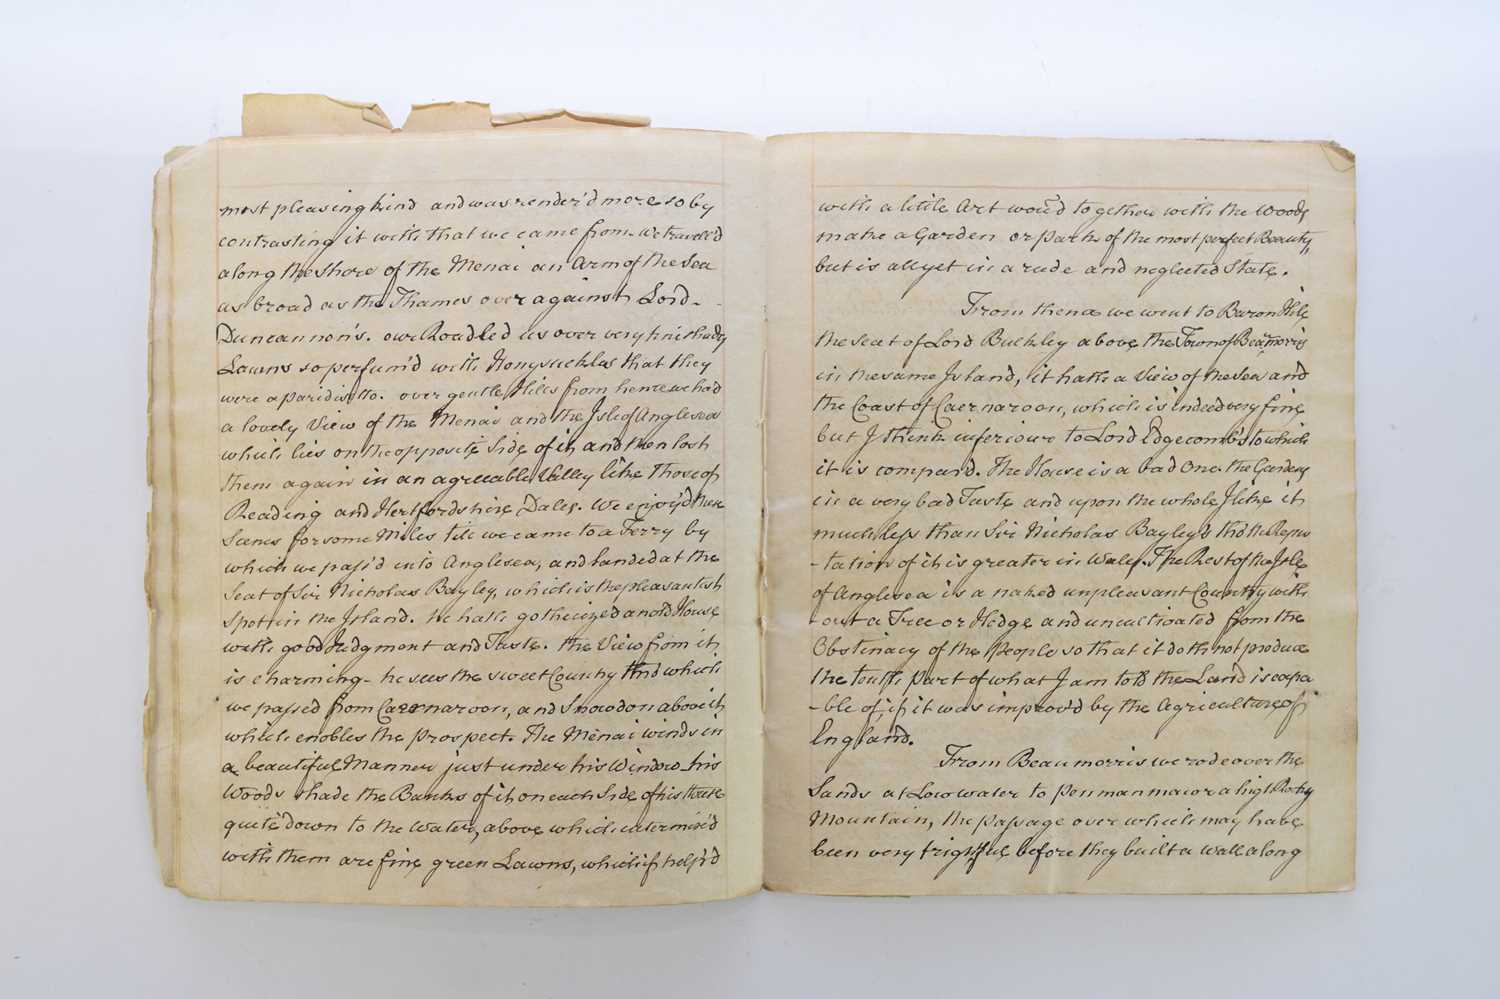 most pleasing kind and was render'd more so by
contrasting it with that we came from. We travell'd
along the Shore of the Menai an Arm of the Sea
as broad as the Thames over against Lord
Duncannon's. our Road led us over very fine shady
Lawns so perfum'd with Honysuckles that they
were a paridis to. over gentle Hills from hence we had
a lovely View of the Menai and the Isle of Anglesea
which lies on the opposite Side of it and then lost
them again in an agreeable Valley like those of
Reading and Hertfordshire Dales. We enjoy'd these
Scenes for some Miles till we came to a Ferry by
which we pass'd into Anglesea, and landed at the
Seat of Sir Nicholas Bayley, which is the pleasantest
Spot in the Island. He hath gothicized an old House
with good Judgment and Taste. the View from it
is charming - he sees the sweet Country thro which
we passed from Caernarvon, and Snowdon above it
which enobles the prospect. The Menai winds in
a beautiful Manner just under his Window his
Woods shade the Banks of it on each Side of his House
quite down to the Water, above which intermix'd
with them are fine green Lawns, which if help'd
with a little Art wou'd together with the Woods
make a Garden or park of the most perfect Beauty,
but is all yet in a rude and neglected State.
From thence we went to Baron Hill
the seat of Lord Bulkley above the Town of Beaumorris
in the same Island, it hath a View of the Sea and
the Coast of Caernarvon, which is indeed very fine
but I think inferiour to Lord Edgecomb's to which
it is compard. The House is a bad One the Gardens
in a very bad Taste and upon the whole I like it
much less than Sir Nicholas Bayley's tho' the Repu
-tation of it is greater in Wales. The Rest of the Isle
of Anglesea is a naked unpleasant Country with
-out a Tree or Hedge and uncultivated from the
Obstinacy of the People so that it doth not produce
the tenth part of what I am told the Land is capa
-ble of, if it was improv'd by the Agriculture of
England.
From Beaumorris we rode over the
Sands at Low water to Penmanmawr a high Rocky
Mountain, the passage over which may have
been very frightful before they built a Wall along